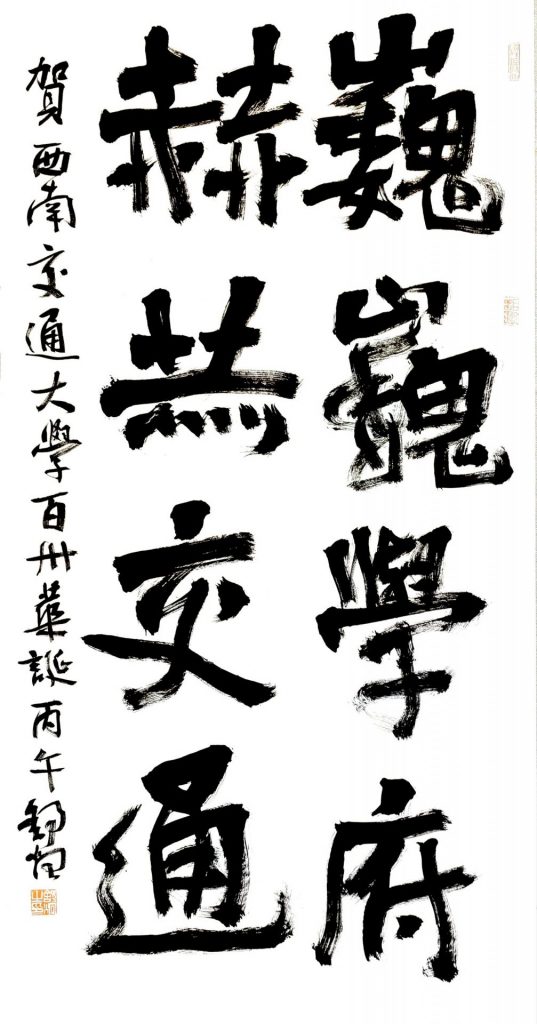 巍巍學府
赫赫交通
賀西南交通大學百卅華誕丙午舒炯